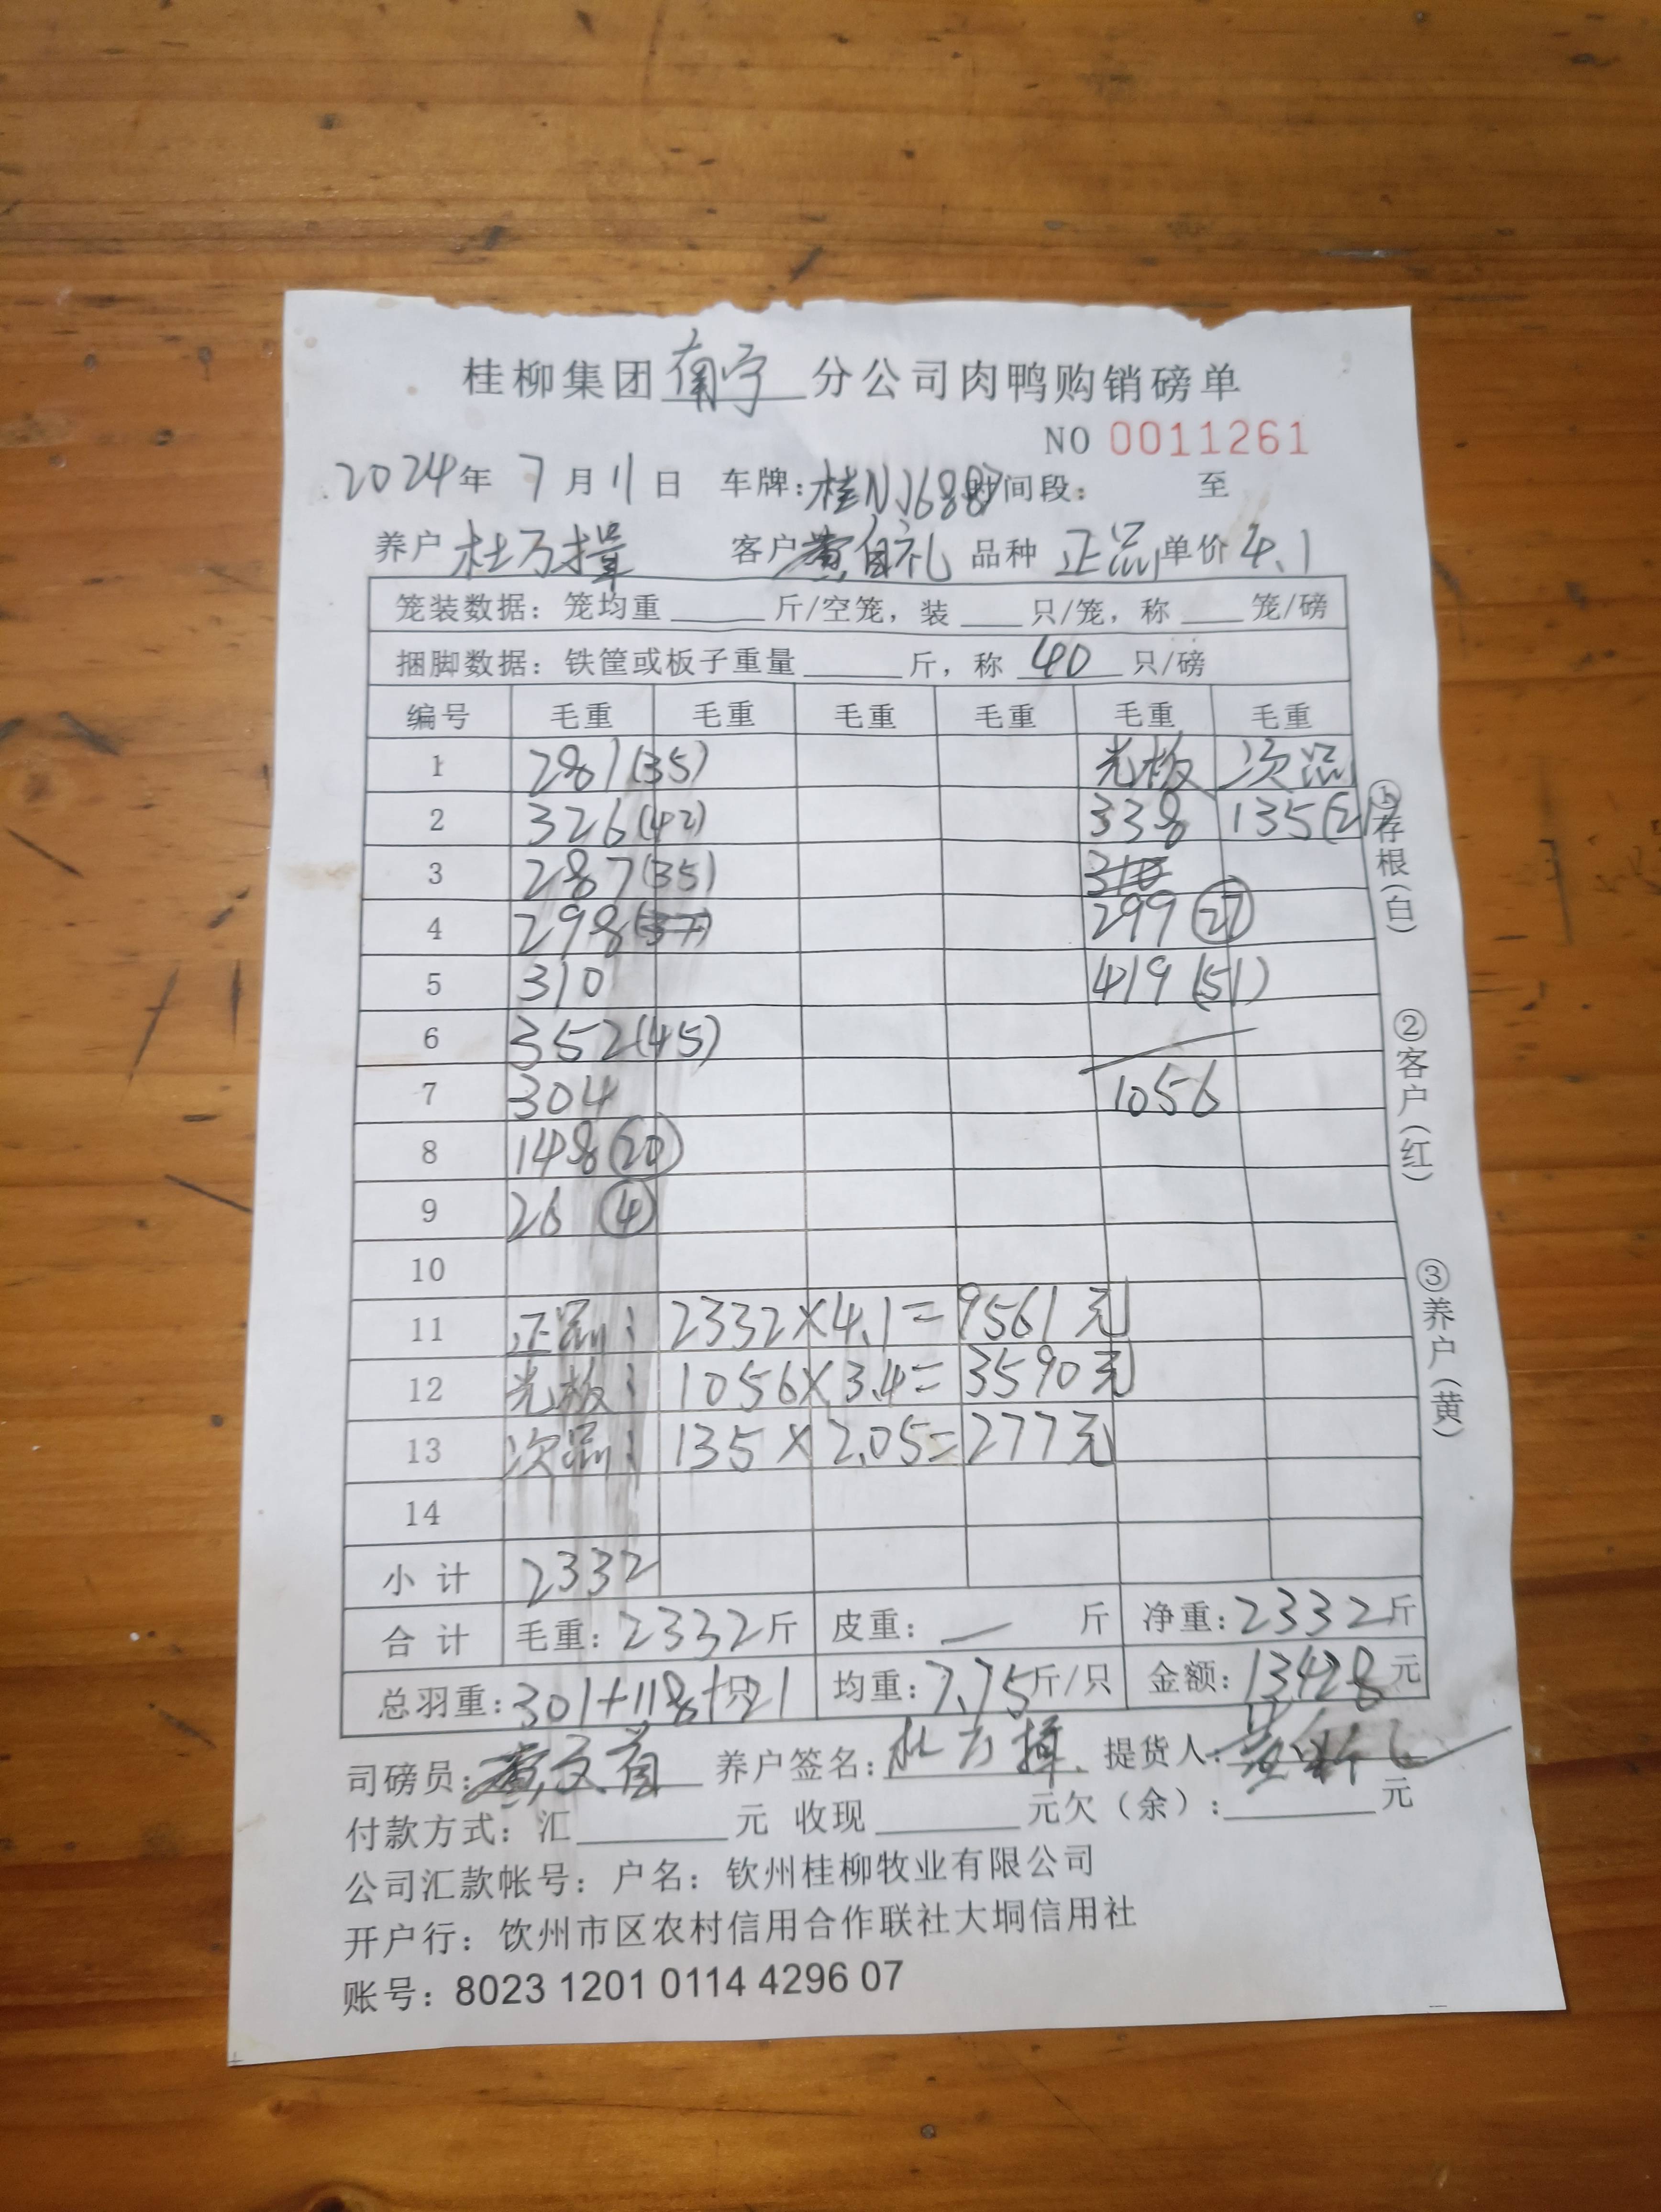 桂柳集团南宁分公司肉鸭购销磅单
NO 0011261
2024年 7月11日 车牌:桂NJ6887时间段: 至
养户 杜万撑 客户 黄自礼 品种 正品 单价 4.1
笼装数据:笼均重 斤/空笼,装 只/笼,称 笼/磅
捆脚数据:铁筐或板子重量 斤,称 40 只/磅
编号 毛重 毛重 毛重 毛重 毛重 毛重
1 281(35) 光板 次品
2 326(42) 338 135(21)
3 287(35) 310
4 298(37) 299 (27)
5 310 419 (51)
6 352(45)
7 304 1056
8 148(20)
9 26 (4)
10
11 正品: 2332×4.1=9561元
12 光板: 1056×3.4=3590元
13 次品: 135×2.05=277元
14
小计 2332
合计 毛重:2332斤 皮重:— 斤 净重:2332斤
总羽重:301+118+21只 均重:7.75斤/只 金额:13428元
司磅员: 养户签名:杜万撑 提货人:
付款方式:汇 元 收现 元欠(余): 元
公司汇款帐号:户名:钦州桂柳牧业有限公司
开户行:饮州市区农村信用合作联社大垌信用社
账号:8023 1201 0114 4296 07
①存根(白)
②客户(红)
③养户(黄)